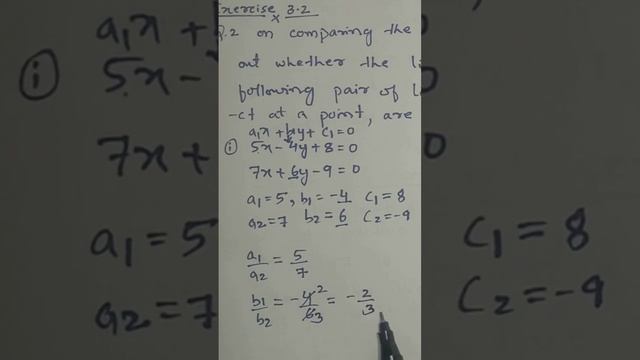 Exercise 3.2
Q.2 on comparing the
out whether the
following pair of
-ct at a point, are
a₁x + b₁y + c₁ = 0
(i) 5x - 4y + 8 = 0
7x + 6y - 9 = 0
a₁ = 5, b₁ = -4 c₁ = 8
a₂ = 7 b₂ = 6 c₂ = -9
a₁/a₂ = 5/7
b₁/b₂ = -4²/6₃ = -2/3
a₁x +
(i) 5x -
7x +
a₁ = 5
a₂ = 7
0
0
c₁ = 8
c₂ = -9